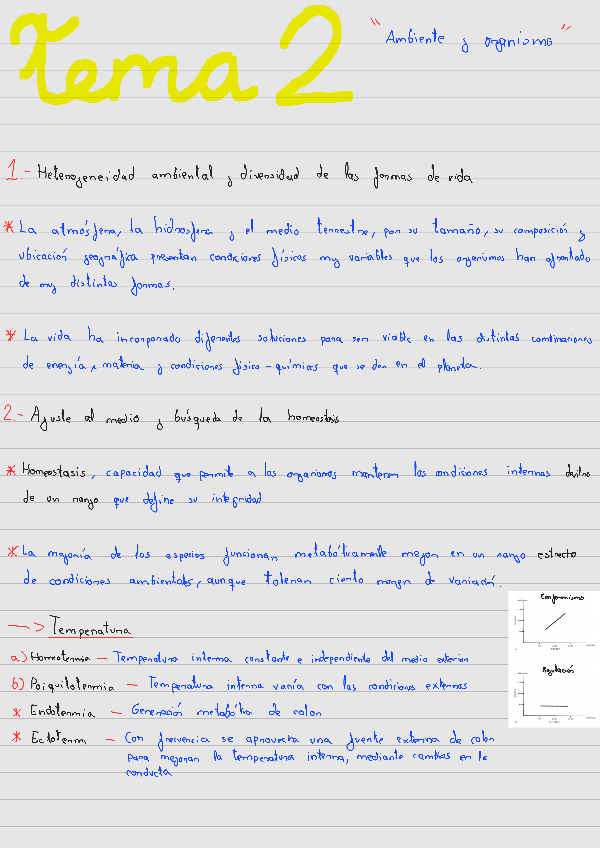 Tema 2
"Ambiente y organismo"
1.- Heterogeneidad ambiental y diversidad de las formas de vida
* La atmósfera, la hidrosfera y el medio terrestre, por su tamaño, su composición y
ubicación geográfica presentan condiciones físicas muy variables que los organismos han afrontado
de muy distintas formas.
* La vida ha incorporado diferentes soluciones para ser viable en las distintas combinaciones
de energía, materia y condiciones físico-químicas que se dan en el planeta.
2.- Ajuste al medio y búsqueda de la homeostasis
* Homeostasis, capacidad que permite a los organismos mantener las condiciones internas dentro
de un rango que define su integridad
* La mayoría de las especies funcionan metabólicamente mejor en un rango estrecto
de condiciones ambientales, aunque toleran cierto margen de variación.
Conformismo
Regulación
—> Temperatura
a) Homeotermia — Temperatura interna constante e independiente del medio exterior
b) Poiquilotermia — Temperatura interna varía con las condiciones externas
* Endotermia — Generación metabólica de calor
* Ectotermia — Con frecuencia se aprovecha una fuente externa de calor
para mejorar la temperatura interna, mediante cambios en la
conducta